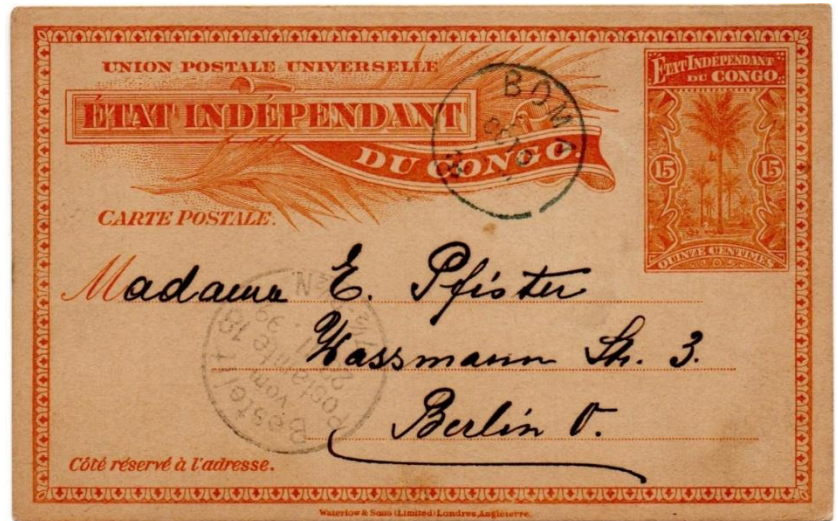 UNION POSTALE UNIVERSELLE
ÉTAT INDÉPENDANT
DU CONGO.
CARTE POSTALE.
ÉTAT INDÉPENDANT
DU CONGO
15 15
QUINZE CENTIMES
BOMA
Madame E. Pfister
Wassmann Str. 3.
Berlin O.
Bestellt
vom
Postamte 18
Côté réservé à l'adresse.
Waterlow & Sons (Limited) Londres, Angleterre.